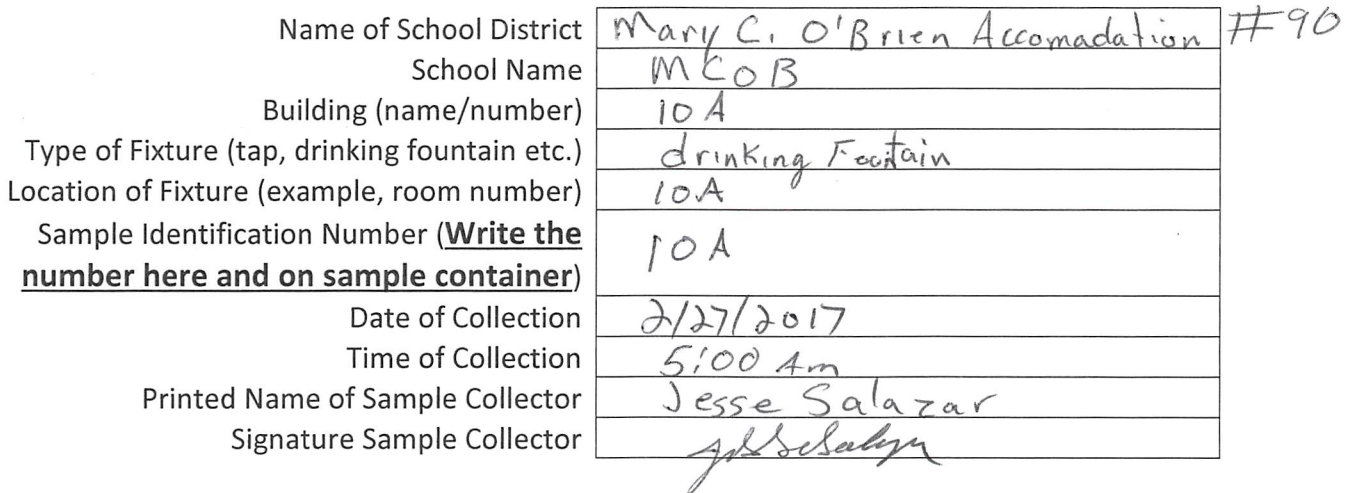 Name of School District Mary C. O'Brien Accomadation #90
School Name MCOB
Building (name/number) 10 A
Type of Fixture (tap, drinking fountain etc.) drinking Fountain
Location of Fixture (example, room number) 10A
Sample Identification Number (Write the
number here and on sample container) 10A
Date of Collection 2/27/2017
Time of Collection 5:00 Am
Printed Name of Sample Collector Jesse Salazar
Signature Sample Collector